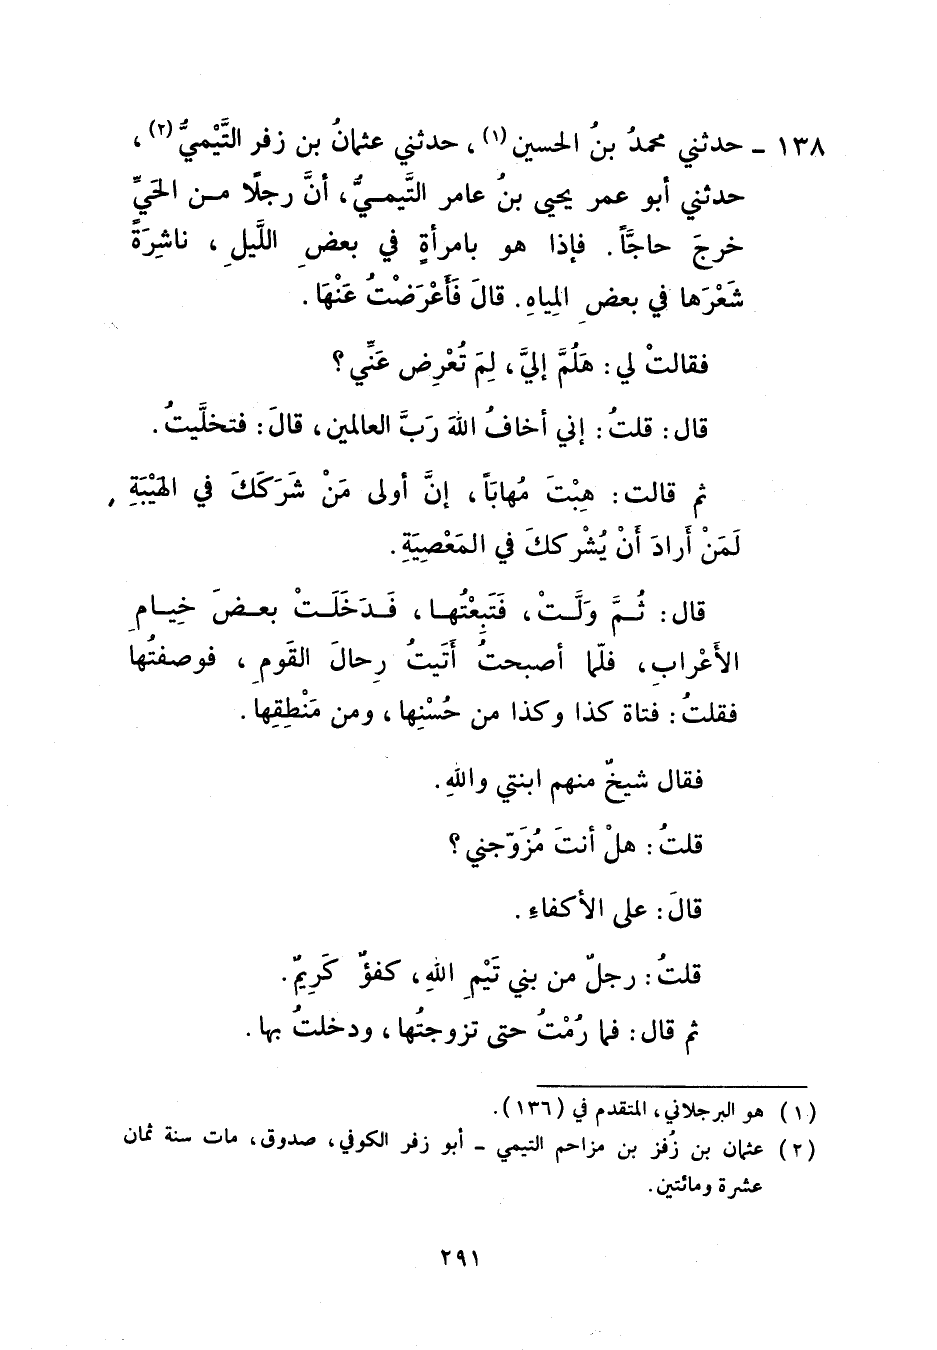 ١٣٨ ـ حدثني محمدُ بنُ الحسين(١)، حدثني عثمانُ بن زفر التَّيْميُّ(٢)،
حدثني أبو عمر يحيى بنُ عامر التَّيمـيُّ، أنَّ رجلًا مـن الحَيِّ
خرجَ حاجَّاً. فإذا هو بامرأةٍ في بعضِ اللَّيلِ، ناشِرَةً
شَعْرَها في بعضِ المِياهِ. قالَ فَأَعْرَضْتُ عَنْهَا.
فقالتْ لي: هَلُمَّ إليَّ، لِمَ تُعْرِض عَنِّي؟
قال: قلتُ: إني أخافُ اللهَ رَبَّ العالمين، قالَ: فتخلَّيتُ.
ثم قالت: هِبْتَ مُهاباً، إنَّ أولى مَنْ شَرَكَكَ في الهَيْبَةِ،
لَمَنْ أرادَ أَنْ يُشْرككَ في المَعْصِيَةِ.
قال: ثُـمَّ وَلَّـتْ، فَتَبِعْتُهـا، فَـدَخَلَـتْ بعـضَ خِيـامِ
الأَعْرابِ، فلّما أصبحتُ أَتَيتُ رِحالَ القَومِ، فوصفتُها
فقلتُ: فتاة كذا وكذا من حُسْنِها، ومن مَنْطِقِها.
فقال شيخٌ منهم ابنتي واللهِ.
قلتُ: هلْ أنتَ مُزَوّجني؟
قالَ: على الأكفاءِ.
قلتُ: رجلٌ من بني تَيْمِ اللهِ، كفؤٌ كَرِيمٌ.
ثم قال: فما رُمْتُ حتى تزوجتُها، ودخلتُ بها.
(١) هو البرجلاني، المتقدم في (١٣٦).
(٢) عثمان بن زُفز بن مزاحم التيمي ـ أبو زفر الكوفي، صدوق، مات سنة ثمان
عشرة ومائتين.
٢٩١